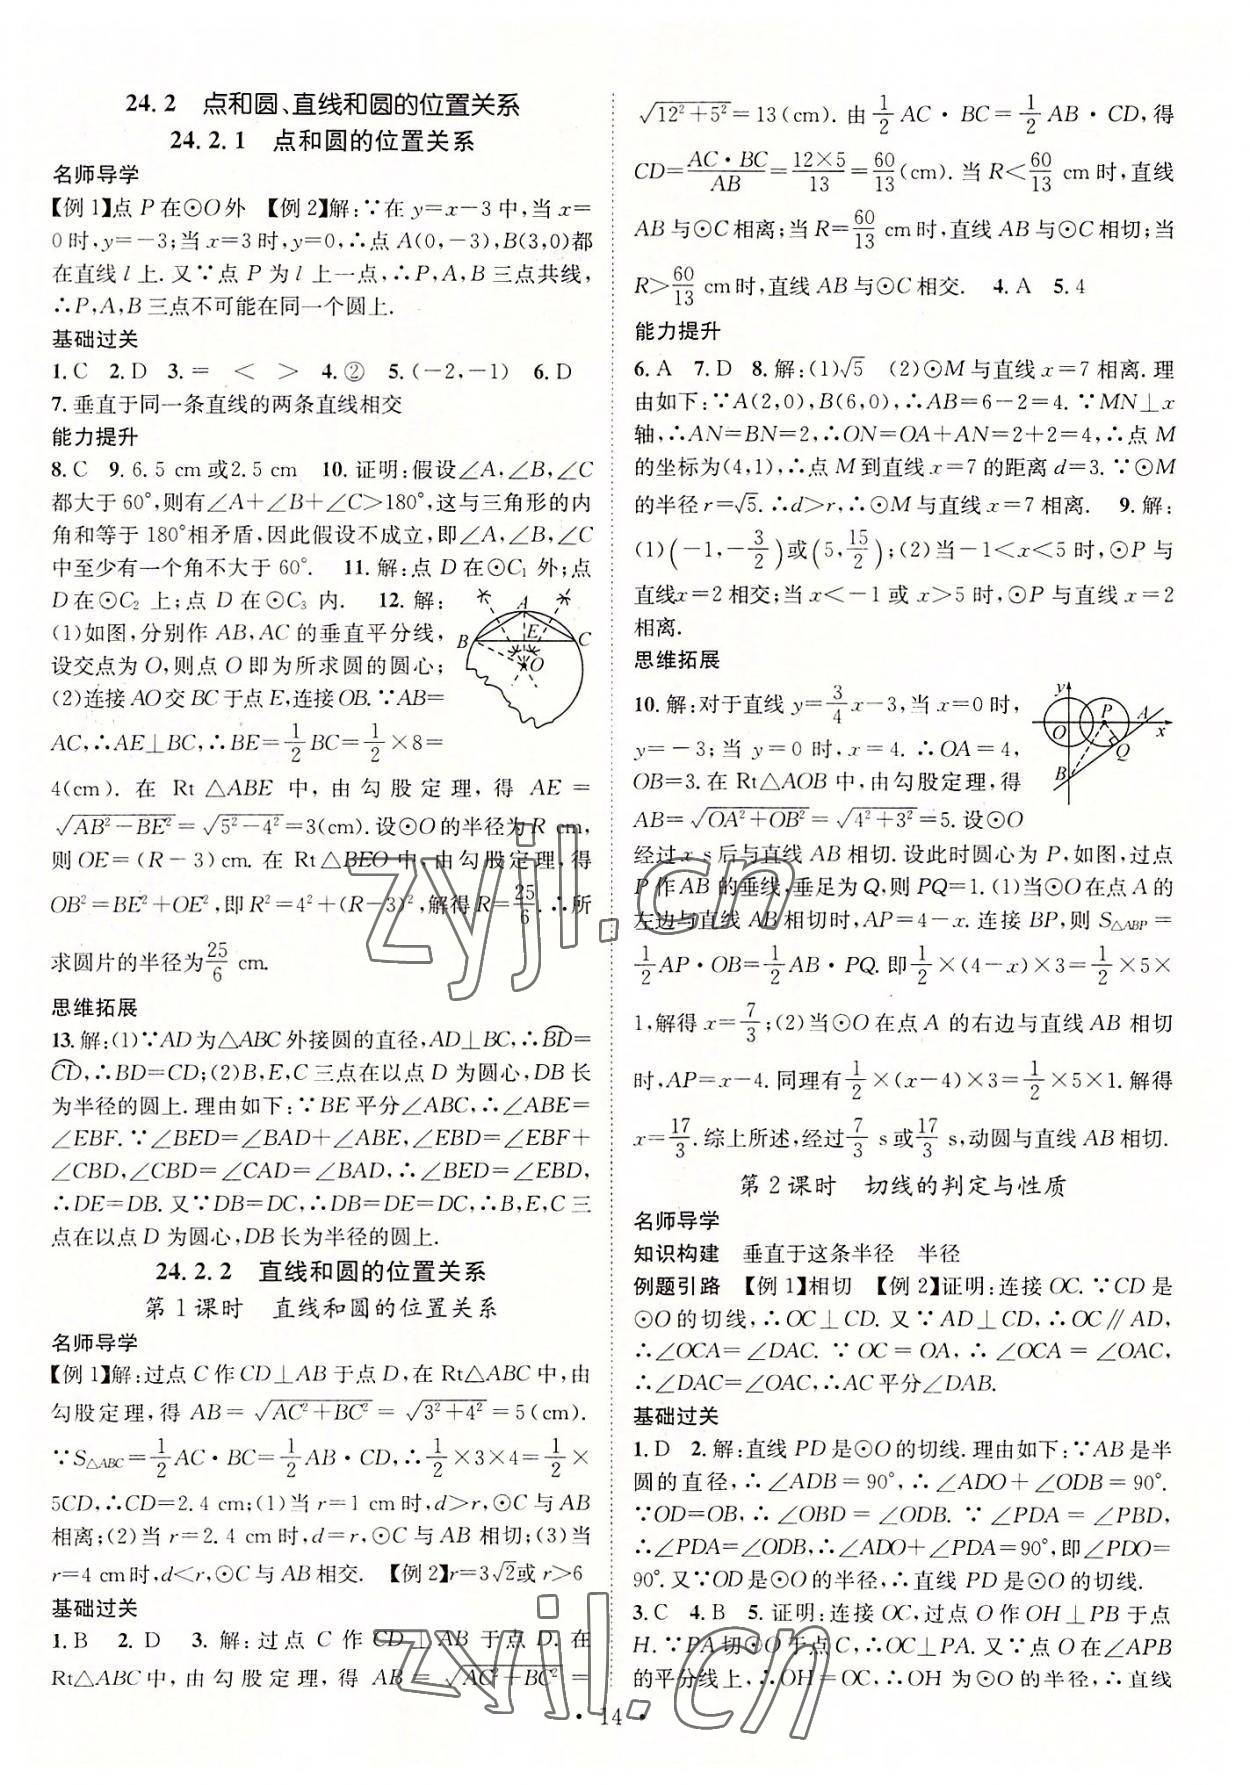 24.2 点和圆、直线和圆的位置关系
24.2.1 点和圆的位置关系
名师导学
【例1】点 P 在⊙O外 【例2】解:∵在 y=x-3 中,当 x=
0时,y=-3;当 x=3时,y=0,∴点 A(0,-3),B(3,0)都
在直线 l 上. 又∵点 P 为 l 上一点,∴P,A,B 三点共线,
∴P,A,B 三点不可能在同一个圆上.
基础过关
1.C 2.D 3.= < > 4.② 5.(-2,-1) 6.D
7.垂直于同一条直线的两条直线相交
能力提升
8.C 9.6.5 cm或2.5 cm 10.证明:假设∠A,∠B,∠C
都大于 60°,则有∠A+∠B+∠C>180°,这与三角形的内
角和等于 180°相矛盾,因此假设不成立,即∠A,∠B,∠C
中至少有一个角不大于 60°. 11.解:点 D在⊙C₁ 外;点
D在⊙C₂ 上;点 D 在⊙C₃ 内. 12.解:
(1)如图,分别作 AB,AC 的垂直平分线,
设交点为 O,则点 O 即为所求圆的圆心;
(2)连接 AO交 BC于点 E,连接 OB. ∵AB=
AC,∴AE⊥BC,∴BE=1/2 BC=1/2×8=
4(cm). 在 Rt△ABE 中,由勾股定理,得 AE=
√(AB²-BE²)=√(5²-4²)=3(cm). 设⊙O的半径为 R cm,
则 OE=(R-3)cm. 在 Rt△BEO 中,由勾股定理,得
OB²=BE²+OE²,即 R²=4²+(R-3)²,解得 R=25/6. ∴所
求圆片的半径为25/6 cm.
A
B
E
C
O
思维拓展
13.解:(1)∵AD 为△ABC 外接圆的直径,AD⊥BC,∴⌒BD=
⌒CD,∴BD=CD;(2)B,E,C 三点在以点 D 为圆心,DB 长
为半径的圆上. 理由如下:∵BE 平分∠ABC,∴∠ABE=
∠EBF. ∵∠BED=∠BAD+∠ABE,∠EBD=∠EBF+
∠CBD,∠CBD=∠CAD=∠BAD,∴∠BED=∠EBD,
∴DE=DB. 又∵DB=DC,∴DB=DE=DC,∴B,E,C 三
点在以点 D 为圆心,DB长为半径的圆上.
24.2.2 直线和圆的位置关系
第1课时 直线和圆的位置关系
名师导学
【例1】解:过点 C 作 CD⊥AB 于点 D,在 Rt△ABC 中,由
勾股定理,得 AB=√(AC²+BC²)=√(3²+4²)=5(cm).
∵S△ABC=1/2 AC·BC=1/2 AB·CD,∴1/2×3×4=1/2×
5CD,∴CD=2.4 cm;(1)当 r=1 cm时,d>r,⊙C与 AB
相离;(2)当 r=2.4 cm时,d=r,⊙C 与 AB 相切;(3)当
r=4 cm时,d<r,⊙C与 AB相交. 【例2】r=3√2或 r>6
基础过关
1.B 2.D 3.解:过点 C 作 CD⊥AB 于点 D. 在
Rt△ABC 中,由勾股定理,得 AB=√(AC²+BC²)=
√(12²+5²)=13(cm). 由 1/2 AC·BC=1/2 AB·CD,得
CD=AC·BC/AB=12×5/13=60/13(cm). 当 R<60/13 cm时,直线
AB与⊙C相离;当 R=60/13 cm时,直线 AB与⊙C相切;当
R>60/13 cm时,直线 AB与⊙C相交. 4.A 5.4
能力提升
6.A 7.D 8.解:(1)√5 (2)⊙M与直线 x=7相离. 理
由如下:∵A(2,0),B(6,0),∴AB=6-2=4. ∵MN⊥x
轴,∴AN=BN=2,∴ON=OA+AN=2+2=4,∴点 M
的坐标为(4,1),∴点 M到直线 x=7的距离 d=3. ∵⊙M
的半径 r=√5. ∴d>r,∴⊙M与直线 x=7相离. 9.解:
(1)(-1,-3/2)或(5,15/2);(2)当-1<x<5 时,⊙P 与
直线x=2相交;当 x<-1 或 x>5 时,⊙P 与直线 x=2
相离.
思维拓展
10.解:对于直线 y=3/4x-3,当 x=0时,
y=-3;当 y=0 时,x=4. ∴OA=4,
OB=3. 在 Rt△AOB 中,由勾股定理,得
AB=√(OA²+OB²)=√(4²+3²)=5. 设⊙O
y
P
A
O
Q
x
B
经过 x s后与直线 AB 相切. 设此时圆心为 P,如图,过点
P 作 AB 的垂线,垂足为 Q,则 PQ=1. (1)当⊙O在点 A 的
左边与直线 AB 相切时,AP=4-x. 连接 BP,则 S△ABP=
1/2 AP·OB=1/2 AB·PQ. 即1/2×(4-x)×3=1/2×5×
1,解得 x=7/3;(2)当⊙O在点 A 的右边与直线 AB 相切
时,AP=x-4. 同理有1/2×(x-4)×3=1/2×5×1. 解得
x=17/3. 综上所述,经过7/3 s或17/3 s,动圆与直线 AB 相切.
第2课时 切线的判定与性质
名师导学
知识构建 垂直于这条半径 半径
例题引路 【例1】相切 【例2】证明:连接 OC. ∵CD 是
⊙O的切线,∴OC⊥CD. 又∵AD⊥CD,∴OC∥AD,
∴∠OCA=∠DAC. ∵OC=OA,∴∠OCA=∠OAC,
∴∠DAC=∠OAC,∴AC平分∠DAB.
基础过关
1.D 2.解:直线 PD是⊙O的切线. 理由如下:∵AB是半
圆的直径,∴∠ADB=90°,∴∠ADO+∠ODB=90°.
∵OD=OB,∴∠OBD=∠ODB. ∵∠PDA=∠PBD,
∴∠PDA=∠ODB,∴∠ADO+∠PDA=90°,即∠PDO=
90°. 又∵OD是⊙O的半径,∴直线 PD是⊙O的切线.
3.C 4.B 5.证明:连接 OC,过点 O 作 OH⊥PB 于点
H. ∵PA切⊙O于点 C,∴OC⊥PA. 又∵点 O 在∠APB
的平分线上,∴OH=OC,∴OH 为⊙O的半径,∴直线
·14·
zyjl.cn
zyjl.cn